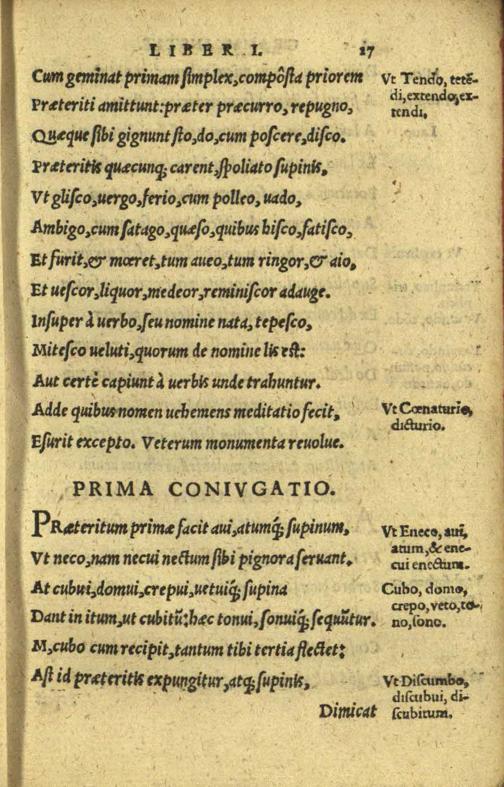 LIBER I. 17
Cum geminat primam simplex, compôsta priorem
Præteriti amittunt: præter præcurro, repugno,
Quæque sibi gignunt sto, do, cum poscere, disco.
Præteritis quæcunq; carent, spoliato supinis,
Vt glisco, uergo, ferio, cum polleo, uado,
Ambigo, cum satago, quæso, quibus hisco, fatisco,
Et furit, & mœret, tum aueo, tum ringor, & aio,
Et uescor, liquor, medeor, reminiscor adauge.
Insuper à uerbo, seu nomine nata, tepesco,
Mitesco ueluti, quorum de nomine lis est:
Aut certè capiunt à uerbis unde trahuntur.
Adde quibus nomen uehemens meditatio fecit,
Esurit excepto. Veterum monumenta reuolue.
Vt Tendo, tetē-
di, extendo, ex-
tendi.
Vt Cœnaturio,
dicturio.
PRIMA CONIVGATIO.
PRæteritum primæ facit aui, atumq; supinum,
Vt neco, nam necui nectum sibi pignora seruant.
At cubui, domui, crepui, uetuiq; supina
Dant in itum, ut cubitū: hæc tonui, sonuiq; sequūtur.
M, cubo cum recipit, tantum tibi tertia flectet:
Ast id præteritis expungitur, atq; supinis,
Dimicat
Vt Eneco, aui,
atum, & ene-
cui enectum.
Cubo, domo,
crepo, veto, to-
no, sono.
Vt Discumbo,
discubui, di-
scubitum.